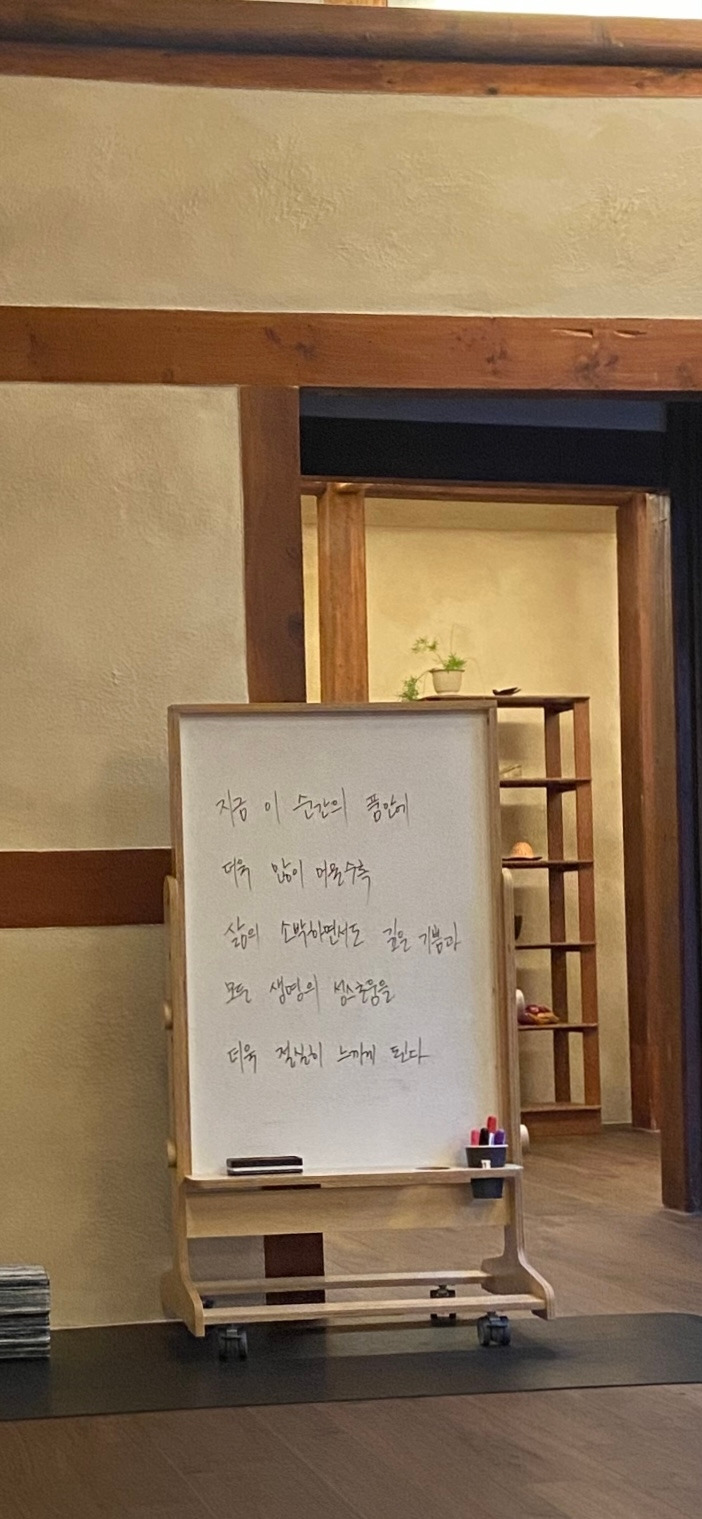 지금 이 순간의 품안에
더욱 많이 머물수록
삶의 소박하면서도 깊은 기쁨과
모든 생명의 성스러움을
더욱 절실히 느끼게 된다